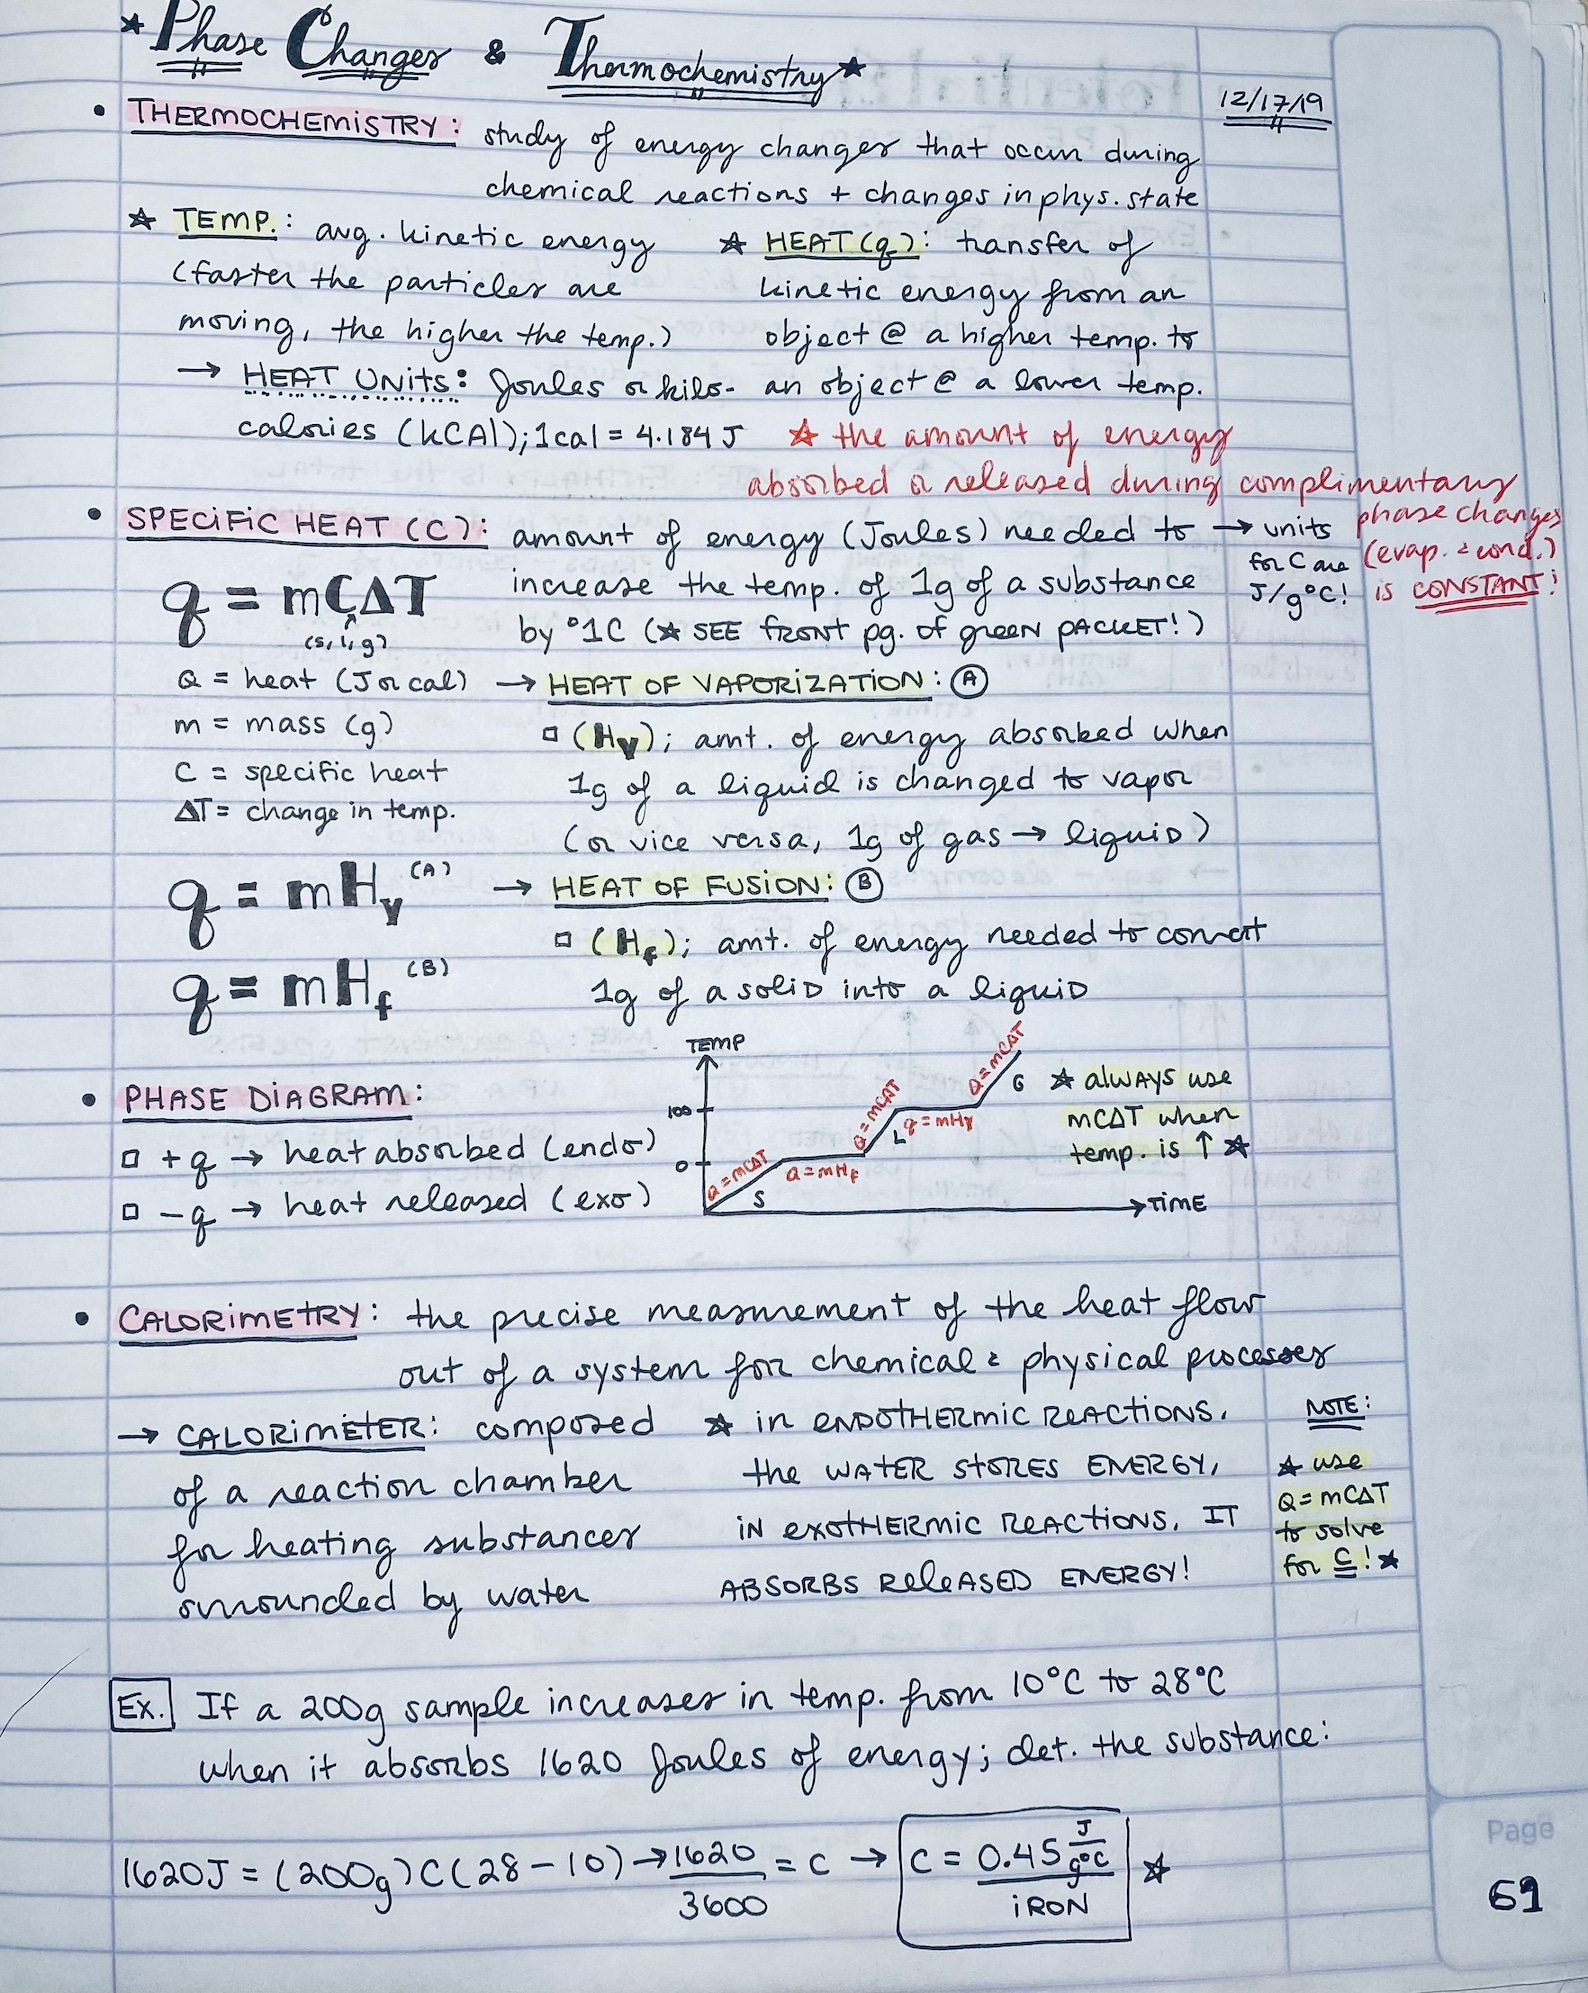 ★ Phase Changes & Thermochemistry ★
12/17/19
• THERMOCHEMISTRY: study of energy changes that occur during
chemical reactions + changes in phys. state
★ TEMP.: avg. kinetic energy
(faster the particles are
moving, the higher the temp.)
→ HEAT UNITS: Joules or kilo-
calories (kCAl); 1cal = 4.184 J
★ HEAT (q): transfer of
kinetic energy from an
object @ a higher temp. to
an object @ a lower temp.
★ the amount of energy
absorbed or released during complimentary
phase changes
(evap. & cond.)
is CONSTANT!
• SPECIFIC HEAT (C): amount of energy (Joules) needed to
increase the temp. of 1g of a substance
by °1C (★ SEE FRONT pg. of green PACKET!)
→ units
for C are
J/g°C!
q = mCΔT
(s, l, g)
Q = heat (J or cal)
m = mass (g)
C = specific heat
ΔT = change in temp.
→ HEAT OF VAPORIZATION: (A)
□ (Hv); amt. of energy absorbed when
1g of a liquid is changed to vapor
(or vice versa, 1g of gas → liquid)
q = mHv (A)
→ HEAT OF FUSION: (B)
□ (Hf); amt. of energy needed to convert
1g of a solid into a liquid
q = mHf (B)
• PHASE DIAGRAM:
□ +q → heat absorbed (endo)
□ -q → heat released (exo)
TEMP
100
0
Q=mCΔT
S
Q=mHf
Q=mCΔT
L
q=mHv
Q=mCΔT
G
→ TIME
★ always use
mCΔT when
temp. is ↑ ★
• CALORIMETRY: the precise measurement of the heat flow
out of a system for chemical & physical processes
→ CALORIMETER: composed
of a reaction chamber
for heating substances
surrounded by water
★ in ENDOTHERMIC REACTIONS,
the WATER STORES ENERGY,
IN EXOTHERMIC REACTIONS, IT
ABSORBS RELEASED ENERGY!
NOTE:
★ use
Q = mCΔT
to solve
for C! ★
Ex. If a 200g sample increases in temp. from 10°C to 28°C
when it absorbs 1620 Joules of energy; det. the substance:
1620J = (200g)C(28-10) → 1620/3600 = C → C = 0.45 J/g°C ★
IRON
Page
69